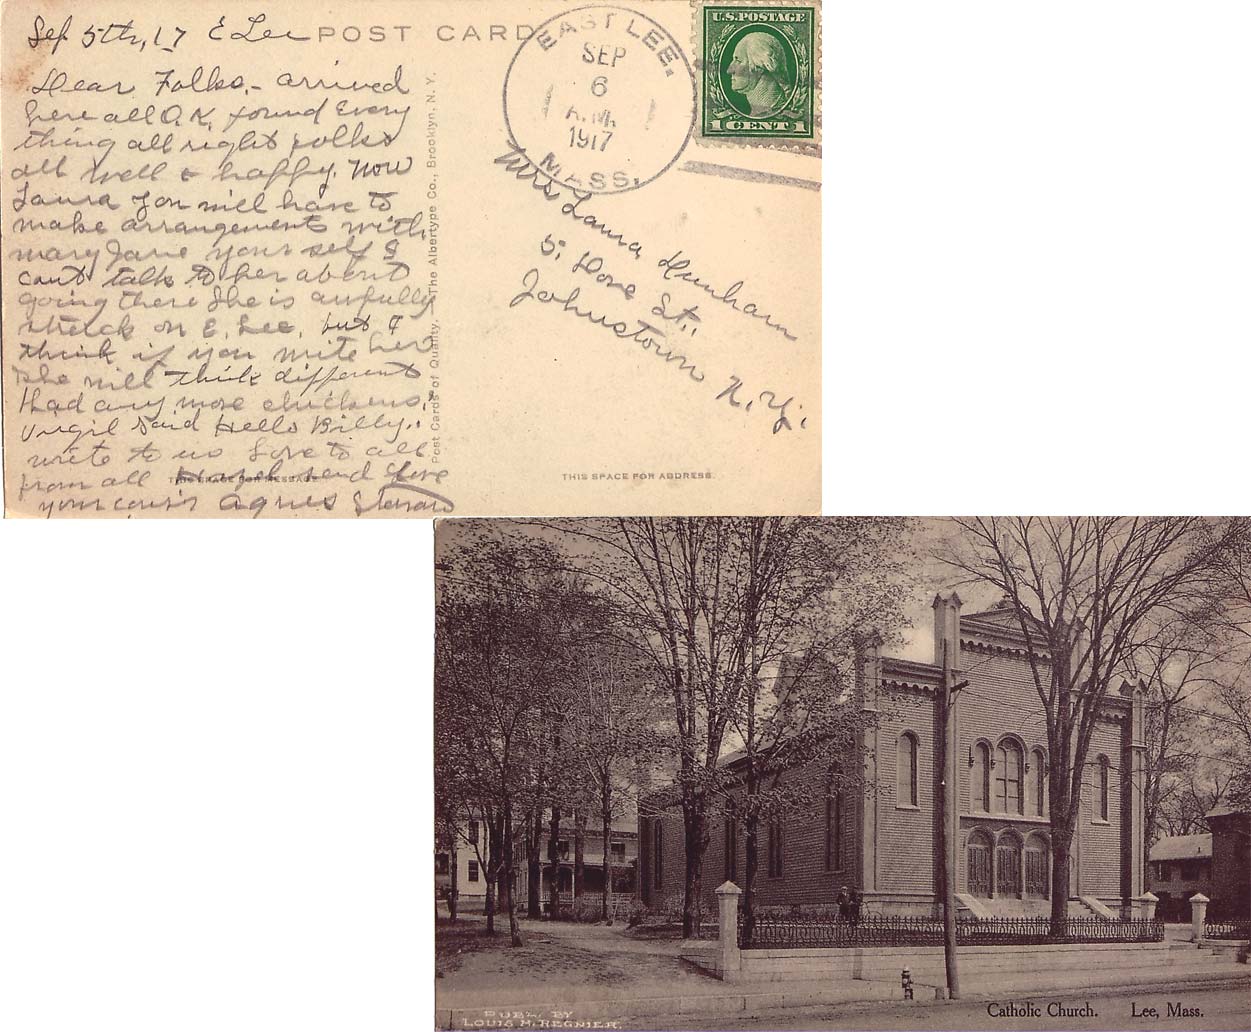 Sep 5th, 17 E Lee
POST CARD
Dear Folks,- arrived
here all O.K, found Every
thing all right folks
all well & happy. Now
Laura you will have to
make arrangements with
mary Jane your self I
cant talk to her about
going there She is awfully
struck on E, Lee, but I
think if you write her
she will think different
Had any more chickens,
Virgil said Hello Billy.,
write to us Love to all
from all Hazel send Love
your cousin Agnes
THIS SPACE FOR MESSAGE.
Post Cards of Quality. The Albertype Co., Brooklyn, N. Y.
EAST LEE.
SEP
6
A.M.
1917
MASS.
U.S. POSTAGE
1 CENT 1
Mrs Laura Dunham
5, Dove St.,
Johnstown N.Y.
THIS SPACE FOR ADDRESS.
PUBL. BY
LOUIS M. REGNIER.
Catholic Church. Lee, Mass.